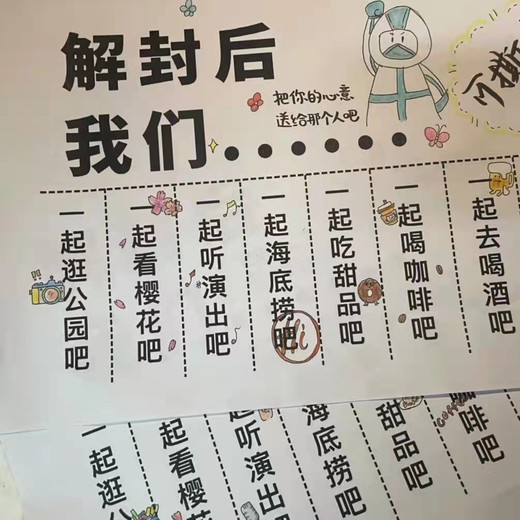 解封后
我们......
把你的心意
送给那个人吧
可撕
一起逛公园吧
一起看樱花吧
一起听演出吧
一起海底捞吧
Hi
一起吃甜品吧
一起喝咖啡吧
一起去喝酒吧
一起逛公
一起看樱花吧
起听演出吧
海底捞吧
甜品吧
咖啡吧